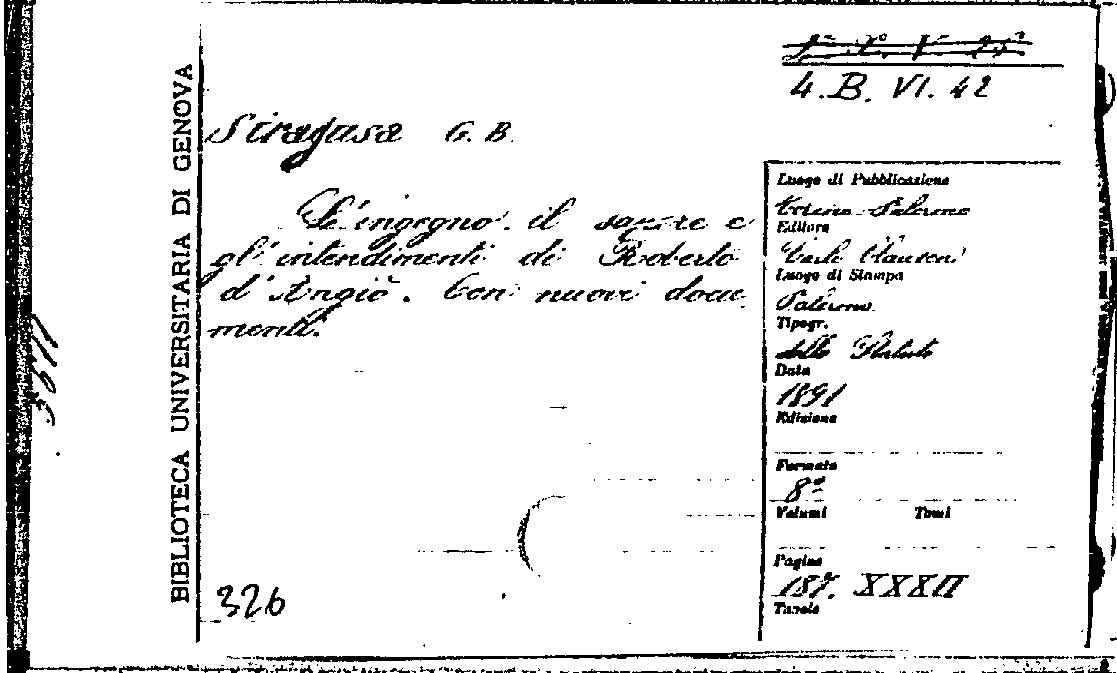 4. B. VI. 42
Siragusa G. B.
L'ingegno il sapere e
gl'intendimenti di Roberto
d'Angiò. Con nuovi docu
menti.
326
BIBLIOTECA UNIVERSITARIA DI GENOVA
Luogo di Pubblicazione
Torino-Palermo
Editore
Carlo Clausen
Luogo di Stampa
Palermo
Tipogr.
dello Statuto
Data
1891
Edizione
Formato
8º
Volumi Tomi
Pagine
187. XXXII
Tavole